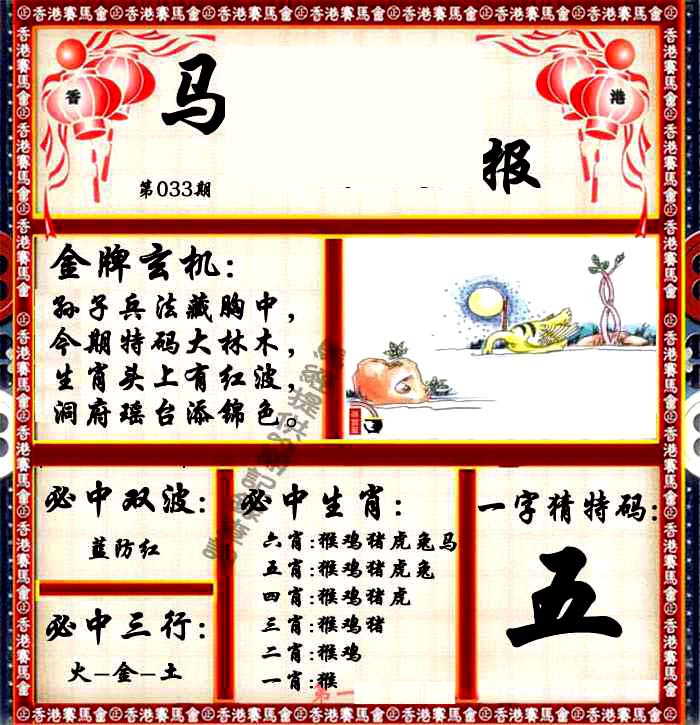 香港賽馬會
香
港
马
报
第033期
金牌玄机:
孙子兵法藏胸中,
今期特码大林木,
生肖头上有红波,
洞府瑶台添锦色。
必中双波:
蓝防红
必中三行:
火-金-土
必中生肖:
六肖:猴鸡猪虎兔马
五肖:猴鸡猪虎兔
四肖:猴鸡猪虎
三肖:猴鸡猪
二肖:猴鸡
一肖:猴
第一
一字猜特码:
五